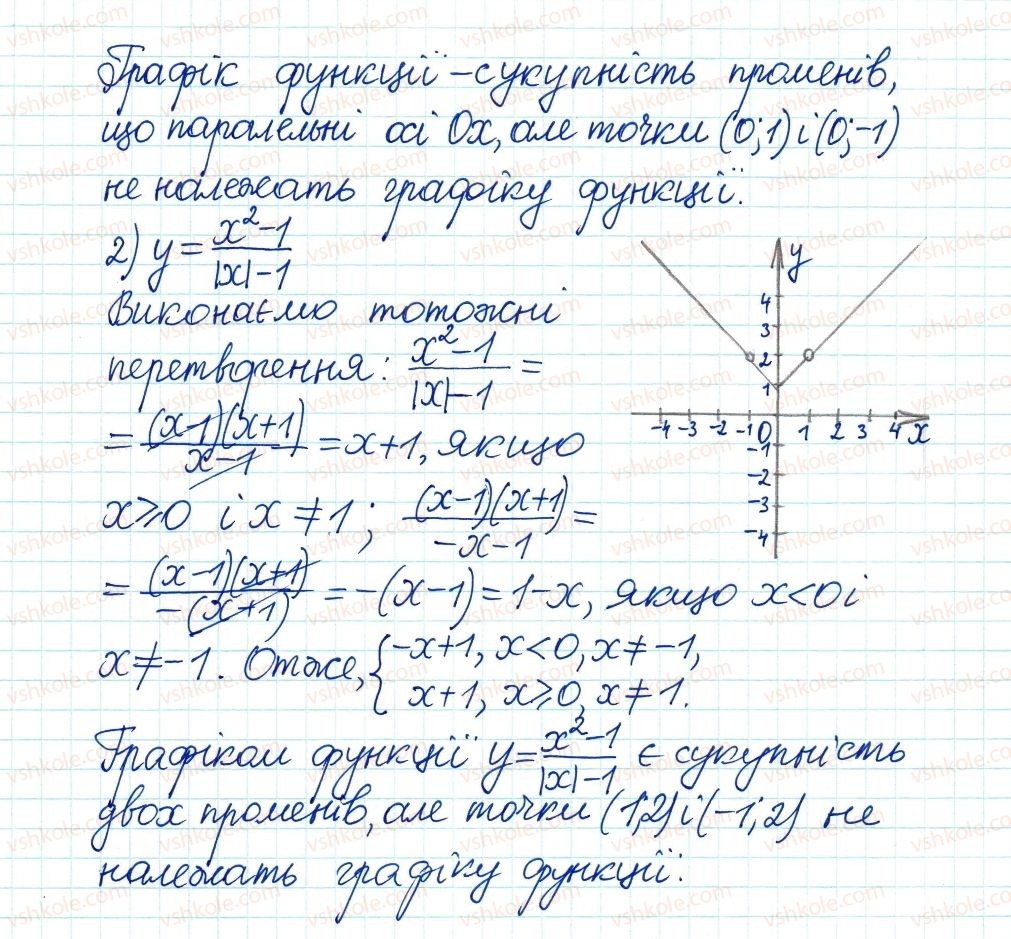 Графік функції – сукупність променів,
що паралельні осі Ox, але точки (0;1) і (0;-1)
не належать графіку функції.
2) y = (x² - 1)/(|x| - 1)
Виконаємо тотожні
перетворення: (x² - 1)/(|x| - 1) =
= (x-1)(x+1)/(x-1) = x+1, якщо
x ≥ 0 і x ≠ 1; (x-1)(x+1)/(-x-1) =
= (x-1)(x+1)/(-(x+1)) = -(x-1) = 1-x, якщо x<0 і
x ≠ -1. Отже, { -x+1, x<0, x ≠ -1,
x+1, x ≥ 0, x ≠ 1.
Графіком функції y = (x² - 1)/(|x| - 1) є сукупність
двох променів, але точки (1;2) і (-1;2) не
належать графіку функції.
y
4
3
2
1
-4 -3 -2 -1 0 1 2 3 4 x
-1
-2
-3
-4
vshkole.com